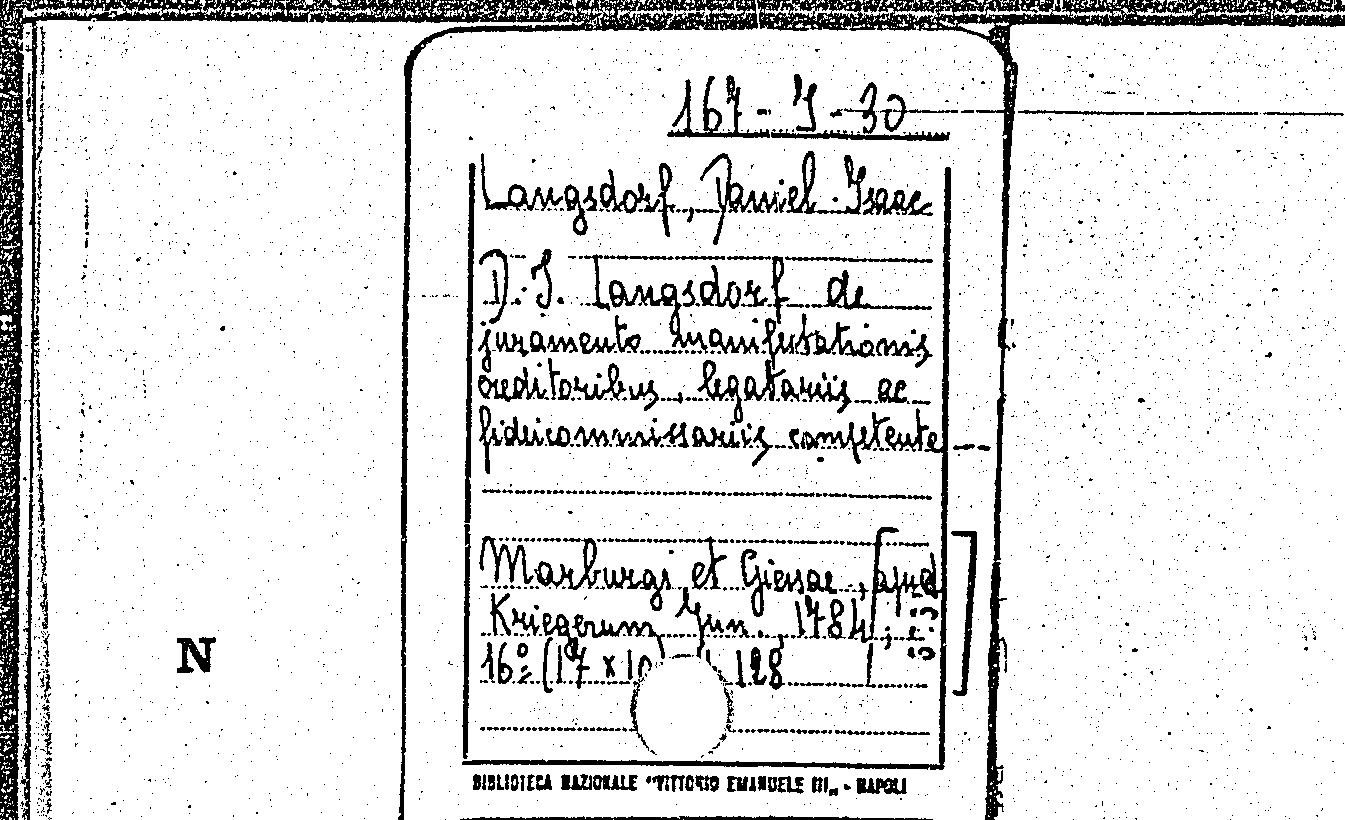 167 - J - 30
Langsdorf, Daniel Isaac
D. J. Langsdorf de
juramento manifestationis
creditoribus, legatariis ac
fideicommissariis competente
Marburgi et Giessae, apud
Kriegerum Jun., 1784;
16º (17 x 10 128
N
BIBLIOTECA NAZIONALE "VITTORIO EMANUELE III„ - NAPOLI